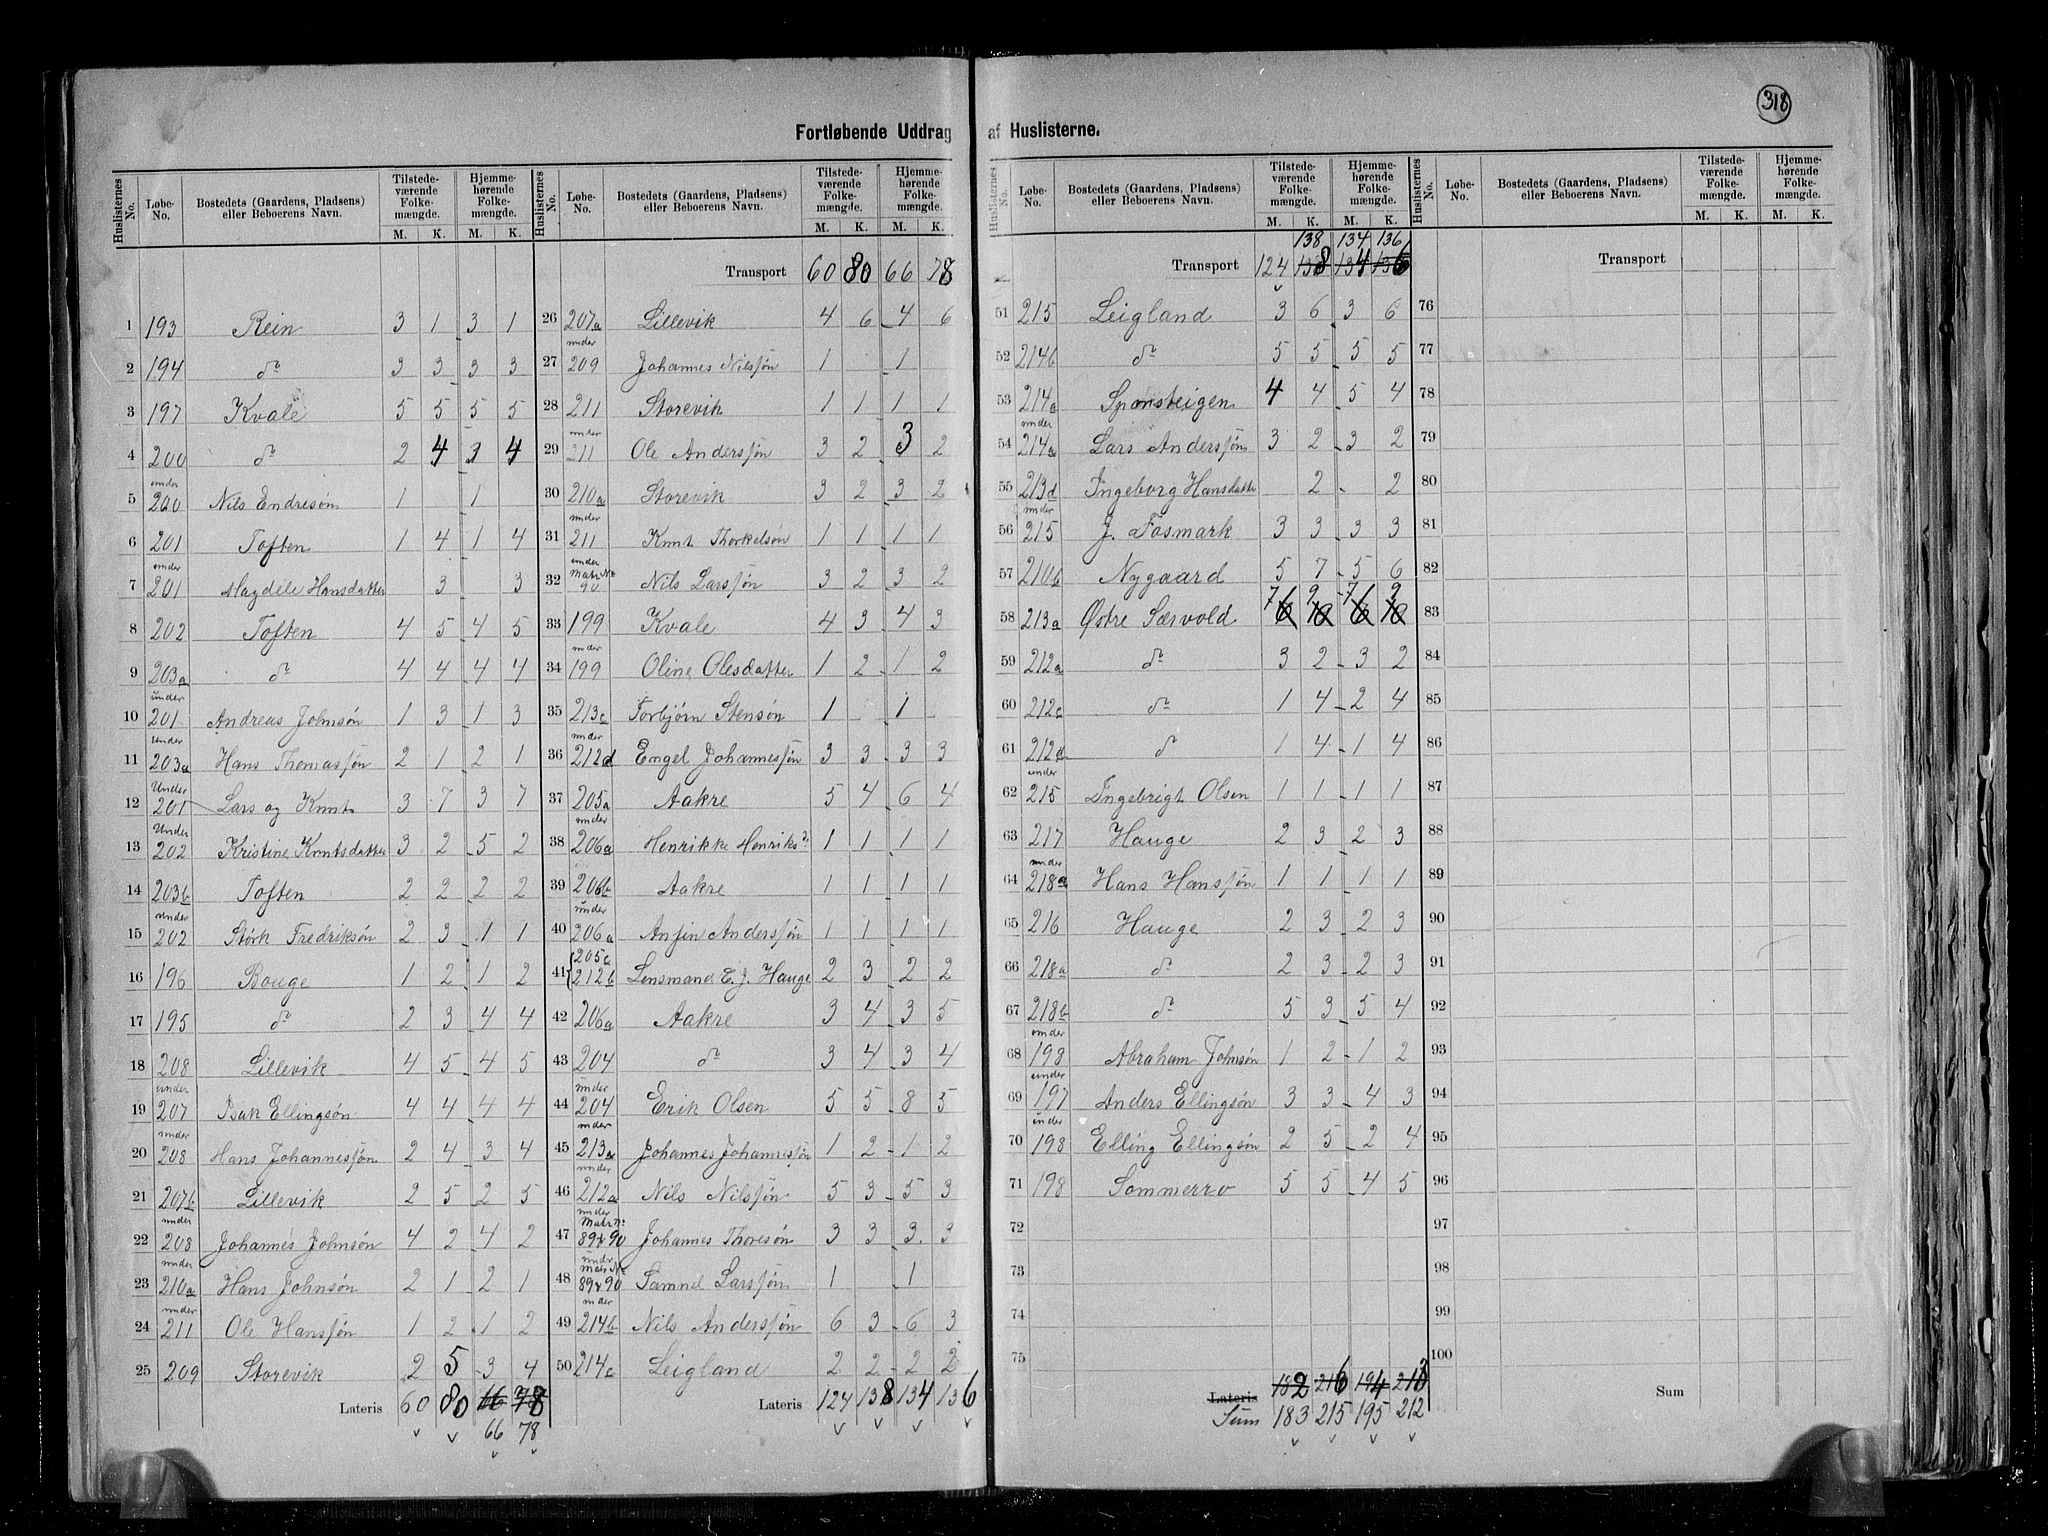 318
Fortløbende Uddrag af Huslisterne.
Huslisternes No. | Løbe-No. | Bostedets (Gaardens, Pladsens) eller Beboerens Navn. | Tilstedeværende Folkemængde. M. K. | Hjemmehørende Folkemængde. M. K.
1 193 Rein 3 1 3 1
2 194 do 3 3 3 3
3 197 Kvale 5 5 5 5
4 200 do 2 4 3 4
5 under 200 Nils Endresøn 1 1
6 201 Toften 1 4 1 4
7 under 201 Magdele Hansdatter 3 3
8 202 Toften 4 5 4 5
9 203a do 4 4 4 4
10 under 201 Andreas Johnsøn 1 3 1 3
11 under 203a Hans Thomassøn 2 1 2 1
12 Under 201 Lars og Knut 3 7 3 7
13 Under 202 Kristine Knutsdatter 3 2 5 2
14 203b Toften 2 2 2 2
15 under 202 Størk Fredriksøn 2 3 1 1
16 196 Bouge 1 2 1 2
17 195 do 2 3 4 4
18 208 Lillevik 4 5 4 5
19 under 207 Isak Ellingsøn 4 4 4 4
20 under 208 Hans Johannessøn 2 4 3 4
21 207b Lillevik 2 5 2 5
22 under 208 Johannes Johnsøn 4 2 4 2
23 under 210a Hans Johnsøn 2 1 2 1
24 under 211 Ole Hanssøn 1 2 1 2
25 209 Storevik 2 5 3 4
Lateris 60 80 66 78
66 78
Huslisternes No. | Løbe-No. | Bostedets (Gaardens, Pladsens) eller Beboerens Navn. | Tilstedeværende Folkemængde. M. K. | Hjemmehørende Folkemængde. M. K.
Transport 60 80 66 78
26 207a Lillevik 4 6 4 6
27 under 209 Johannes Nilssøn 1 1
28 211 Storevik 1 1 1 1
29 under 211 Ole Anderssøn 3 2 3 2
30 210a Storevik 3 2 3 2
31 under 211 Knut Thorkelsøn 1 1 1 1
32 under Matr No 90 Nils Larssøn 3 2 3 2
33 199 Kvale 4 3 4 3
34 under 199 Oline Olesdatter 1 2 1 2
35 213c Torbjørn Stensøn 1 1
36 under 212d Engel Johannessøn 3 3 3 3
37 205a Aakre 5 4 6 4
38 under 206a Henrikke Henriksdr 1 1 1 1
39 206b Aakre 1 1 1 1
40 under 206a Anfin Anderssøn 1 1 1 1
41 205c 212b Lensmand E. J. Hauge 2 3 2 2
42 206a Aakre 3 4 3 5
43 204 do 3 4 3 4
44 under 204 Erik Olsen 5 5 8 5
45 under 213a Johannes Johannessøn 1 2 1 2
46 under 212a Nils Nilssøn 5 3 5 3
47 under Matr No 89 & 90 Johannes Thoresøn 3 3 3 3
48 under Matr No 89 & 90 Samuel Larssøn 1 1
49 under 214b Nils Anderssøn 6 3 6 3
50 214c Leigland 2 2 2 2
Lateris 124 138 134 136
Huslisternes No. | Løbe-No. | Bostedets (Gaardens, Pladsens) eller Beboerens Navn. | Tilstedeværende Folkemængde. M. K. | Hjemmehørende Folkemængde. M. K.
138 134 136
Transport 124 138 134 136
51 215 Leigland 3 6 3 6
52 214b do 5 5 5 5
53 214a Sponsteigen 4 4 5 4
54 under 214a Lars Anderssøn 3 2 3 2
55 213d Ingeborg Hansdatter 2 2
56 under 215 J. Fosmark 3 3 3 3
57 210b Nygaard 5 7 5 6
7 9 7 9
58 213a Østre Sævold 6 10 6 10
59 212a do 3 2 3 2
60 212c do 1 4 2 4
61 212d do 1 4 1 4
62 under 215 Ingebrigt Olsen 1 1 1 1
63 217 Hauge 2 3 2 3
64 under 218a Hans Hanssøn 1 1 1 1
65 216 Hauge 2 3 2 3
66 218a do 2 3 2 3
67 218b do 5 3 5 4
68 under 198 Abraham Johnsøn 1 2 1 2
69 under 197 Anders Ellingsøn 3 3 4 3
70 under 198 Elling Ellingsøn 2 5 2 4
71 198 Sommerro 5 5 4 5
72
73
74
75
Lateris 182 216 194 213
Sum 183 215 195 212
Huslisternes No. | Løbe-No. | Bostedets (Gaardens, Pladsens) eller Beboerens Navn. | Tilstedeværende Folkemængde. M. K. | Hjemmehørende Folkemængde. M. K.
Transport
76
77
78
79
80
81
82
83
84
85
86
87
88
89
90
91
92
93
94
95
96
97
98
99
100
Sum